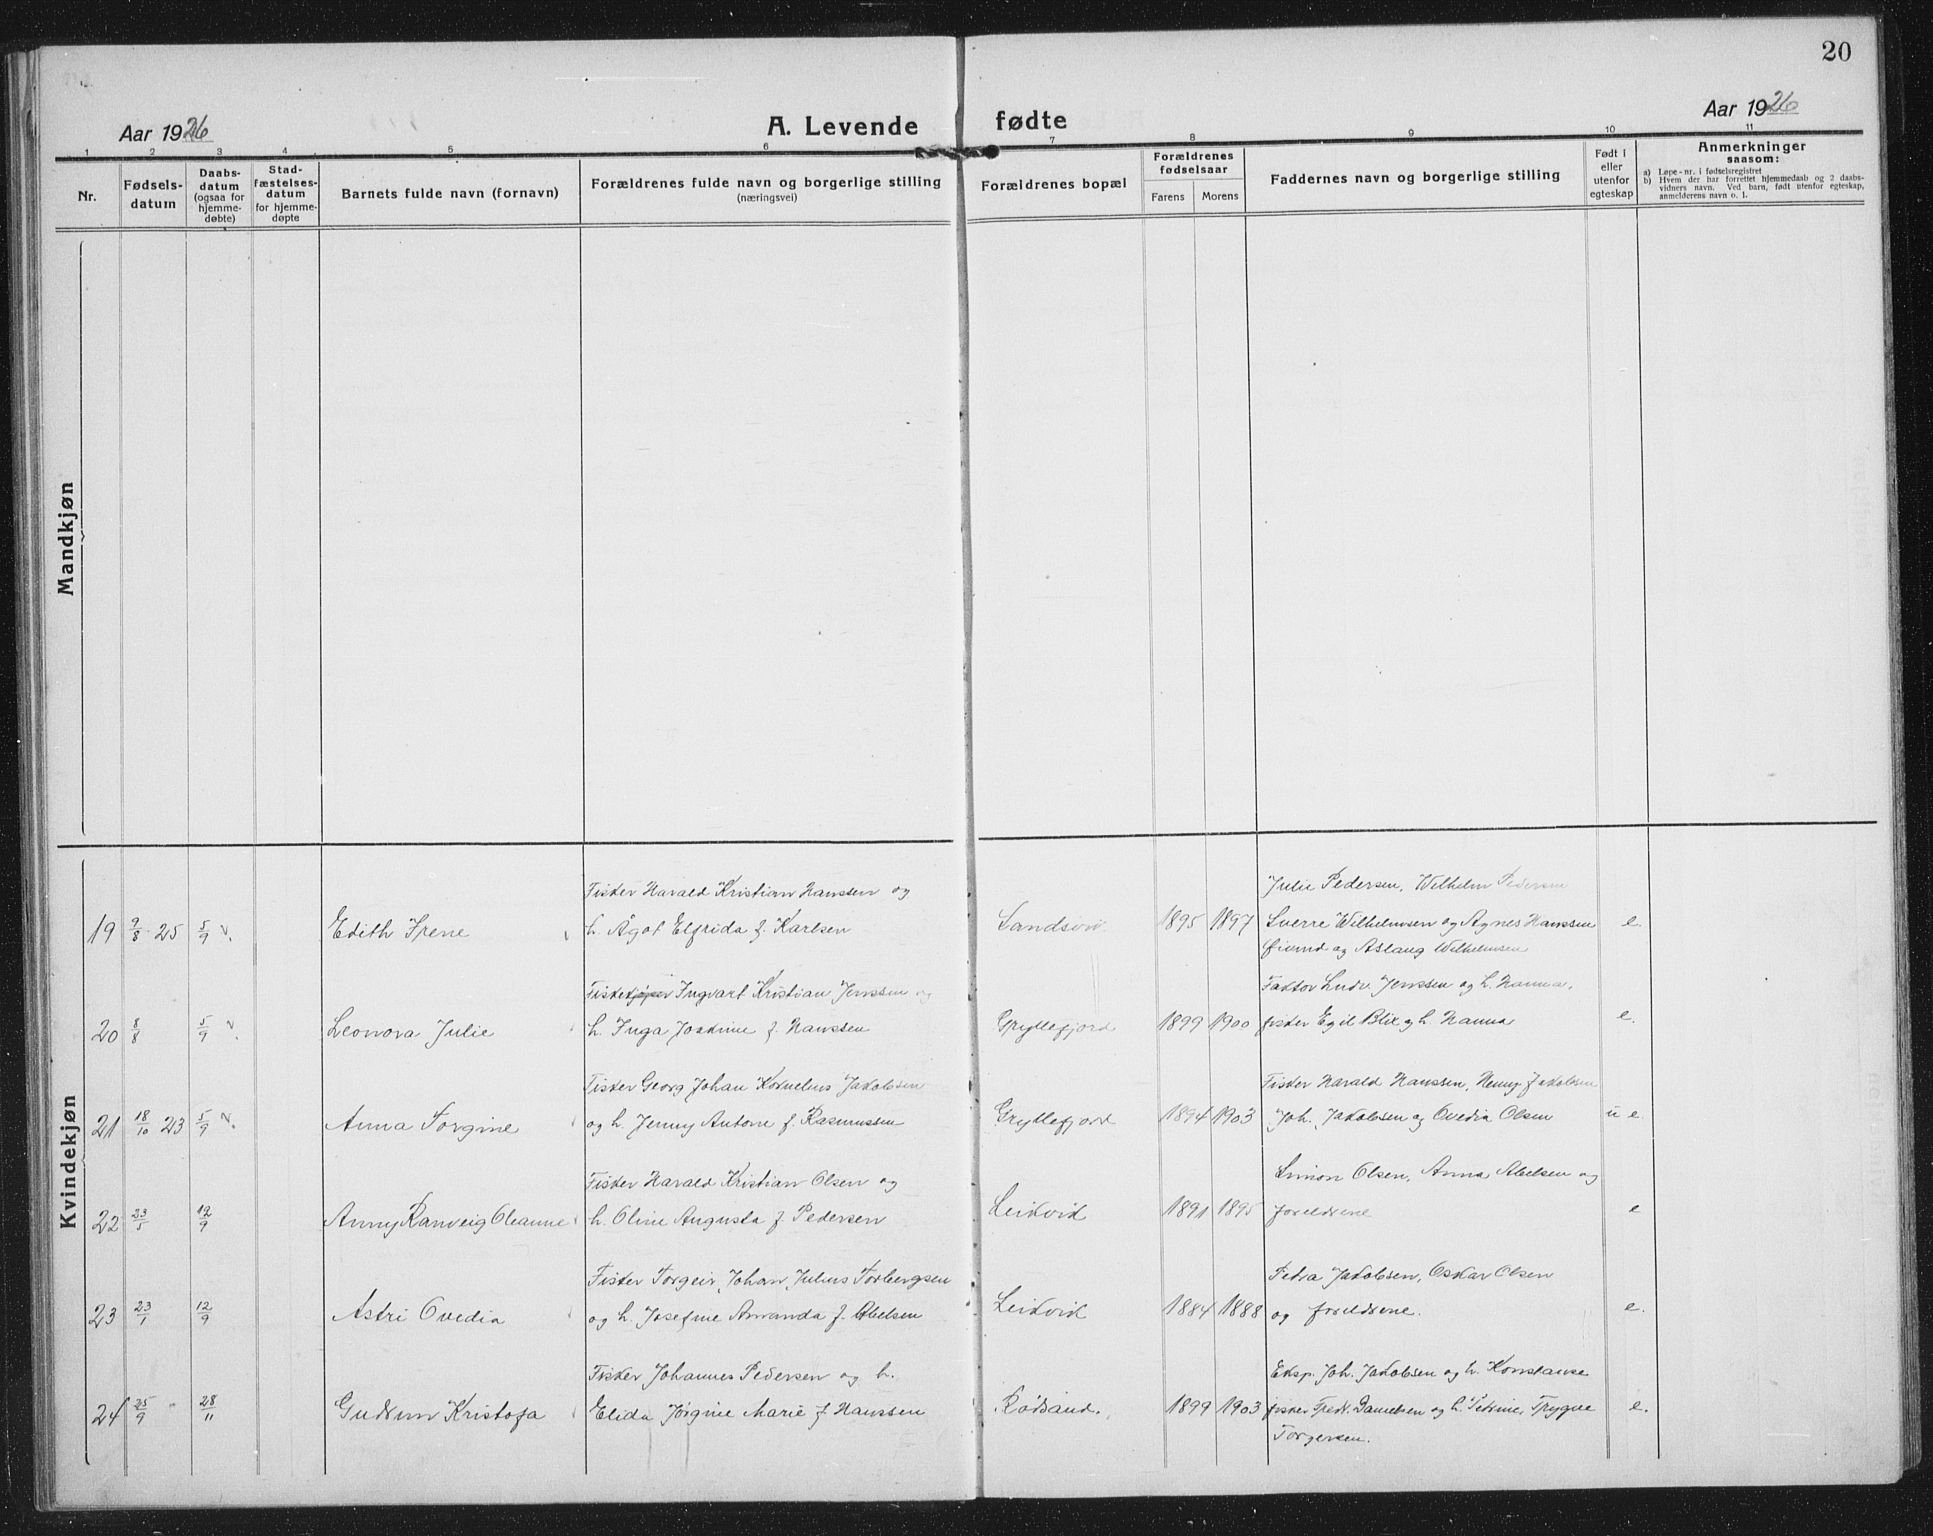 20
Aar 1926
A. Levende fødte
Aar 1926
1 2 3 4 5 6 7 8 9 10 11
Nr.
Fødsels-
datum
Daabs-
datum
(ogsaa for
hjemme-
døbte)
Stad-
fæstelses-
datum
for hjemme-
døpte
Barnets fulde navn (fornavn)
Forældrenes fulde navn og borgerlige stilling
(næringsvei)
Forældrenes bopæl
Forældrenes
fødselsaar
Farens Morens
Faddernes navn og borgerlige stilling
Født i
eller
utenfor
egteskap
Anmerkninger
saasom:
a) Løpe-nr. i fødselsregistret
b) Hvem der har forrettet hjemmedaab og 2 daabs-
vidners navn. Ved barn, født utenfor egteskap,
anmelderens navn o. l.
Mandkjøn
Kvindekjøn
Fisker Harald Kristian Hanssen og Julie Pedersen, Wilhelm Pedersen
19 9/8 25 5/9 Edith Irene h. Ågot Elfrida f. Karlsen 1895 1897 Sverre Wilhelmsen og Agnes Hanssen e.
og Aslaug Wilhelmsen
Ingvart Kristian Jenssen og Faktor Jenssen og h. Hanna,
20 8/8 5/9 Leonora Julie h. Inga Josdine f. Hanssen Gryllefjord 1899 1900 fisker Egil Blix og h. Hanna e.
Fisker Georg Johan Kornelius Jakobsen Fisker Harald Hanssen, Henny Jakobsen
21 18/10 23 5/9 Anna Torgine og h. Jenny Antone f. Rasmussen Gryllefjord 1894 1903 Joh. Jakobsen og Ovedia Olsen u e.
Fisker Harald Kristian Olsen og Simon Olsen, Anna Abelsen og
22 23/5 12/9 Anny Ranveig Oleanne h. Oline Augusta f. Pedersen Leikvik 1891 1895 foreldrene e
Fisker Torgeir Johan Julius Torbergsen Petra Jakobsen, Oskar Olsen
23 23/1 12/9 Astri Ovedia og h. Josefine Amanda f. Abelsen Leikvik 1884 1888 og foreldrene. e.
Fisker Johannes Pedersen og h. Eksp. Joh. Jakobsen og h. Konstanse
24 25/9 28/11 Gudrun Kristofa Elida Jørgine Marie f Hanssen Rødsand. 1899 1903 fisker Fredr. Danielsen og h. Petrine, Trygve e.
Torgersen.